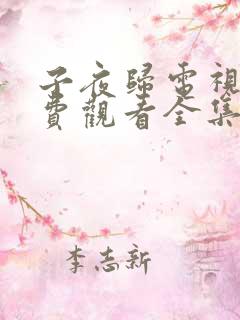 子夜歸電視
費觀看全集
李志新